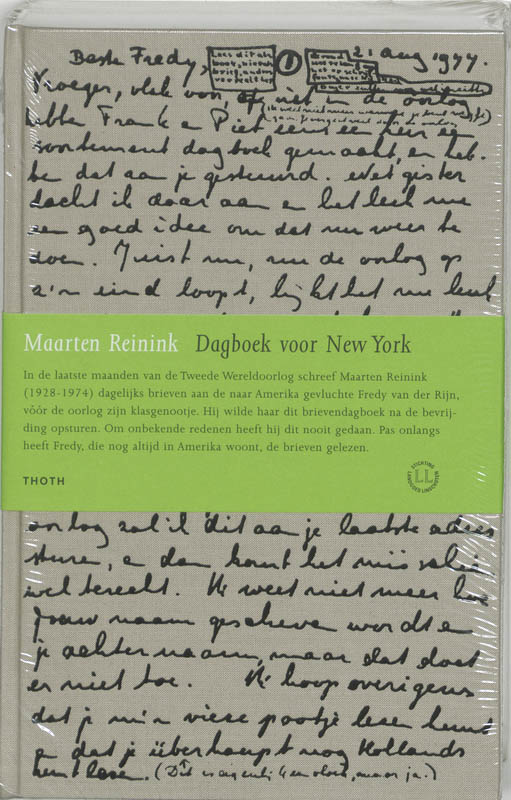 Beste Fredy,
1
21 aug 1944.
Vroeger, vlak voor, of in de oorlog
Frank en Piet eens een
soortement dagboek gemaakt, en heb-
be dat aan je gestuurd. Net gister
dacht ik daar aan en het leek me
een goed idee om dat nu weer te
doen. Juist nu, nu de oorlog op
z'n eind loopt, lijkt het me leuk
Maarten Reinink Dagboek voor New York
In de laatste maanden van de Tweede Wereldoorlog schreef Maarten Reinink
(1928-1974) dagelijks brieven aan de naar Amerika gevluchte Fredy van der Rijn,
vóór de oorlog zijn klasgenootje. Hij wilde haar dit brievendagboek na de bevrij-
ding opsturen. Om onbekende redenen heeft hij dit nooit gedaan. Pas onlangs
heeft Fredy, die nog altijd in Amerika woont, de brieven gelezen.
THOTH
STICHTING
LL
oorlog zal ik dit aan je laatste adres
sture, en dan komt het misschien
wel terecht. Ik weet niet meer hoe
jouw naam geschreven wordt en
je achternaam, maar dat doet
er niet toe. Ik hoop overigens
dat je m'n vieze pootje lesen kunt
en dat je überhaupt nog Hollands
kunt lesen. (Dit is eigenlijk een vloek, maar ja.)